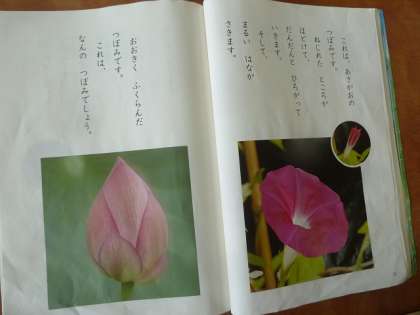 これは、あさがおの
つぼみです。
ねじれた ところが
ほどけて、
だんだんと ひろがって
いきます。
そして、
まるい はなが
さきます。
おおきく ふくらんだ
つぼみです。
これは、
なんの つぼみでしょう。